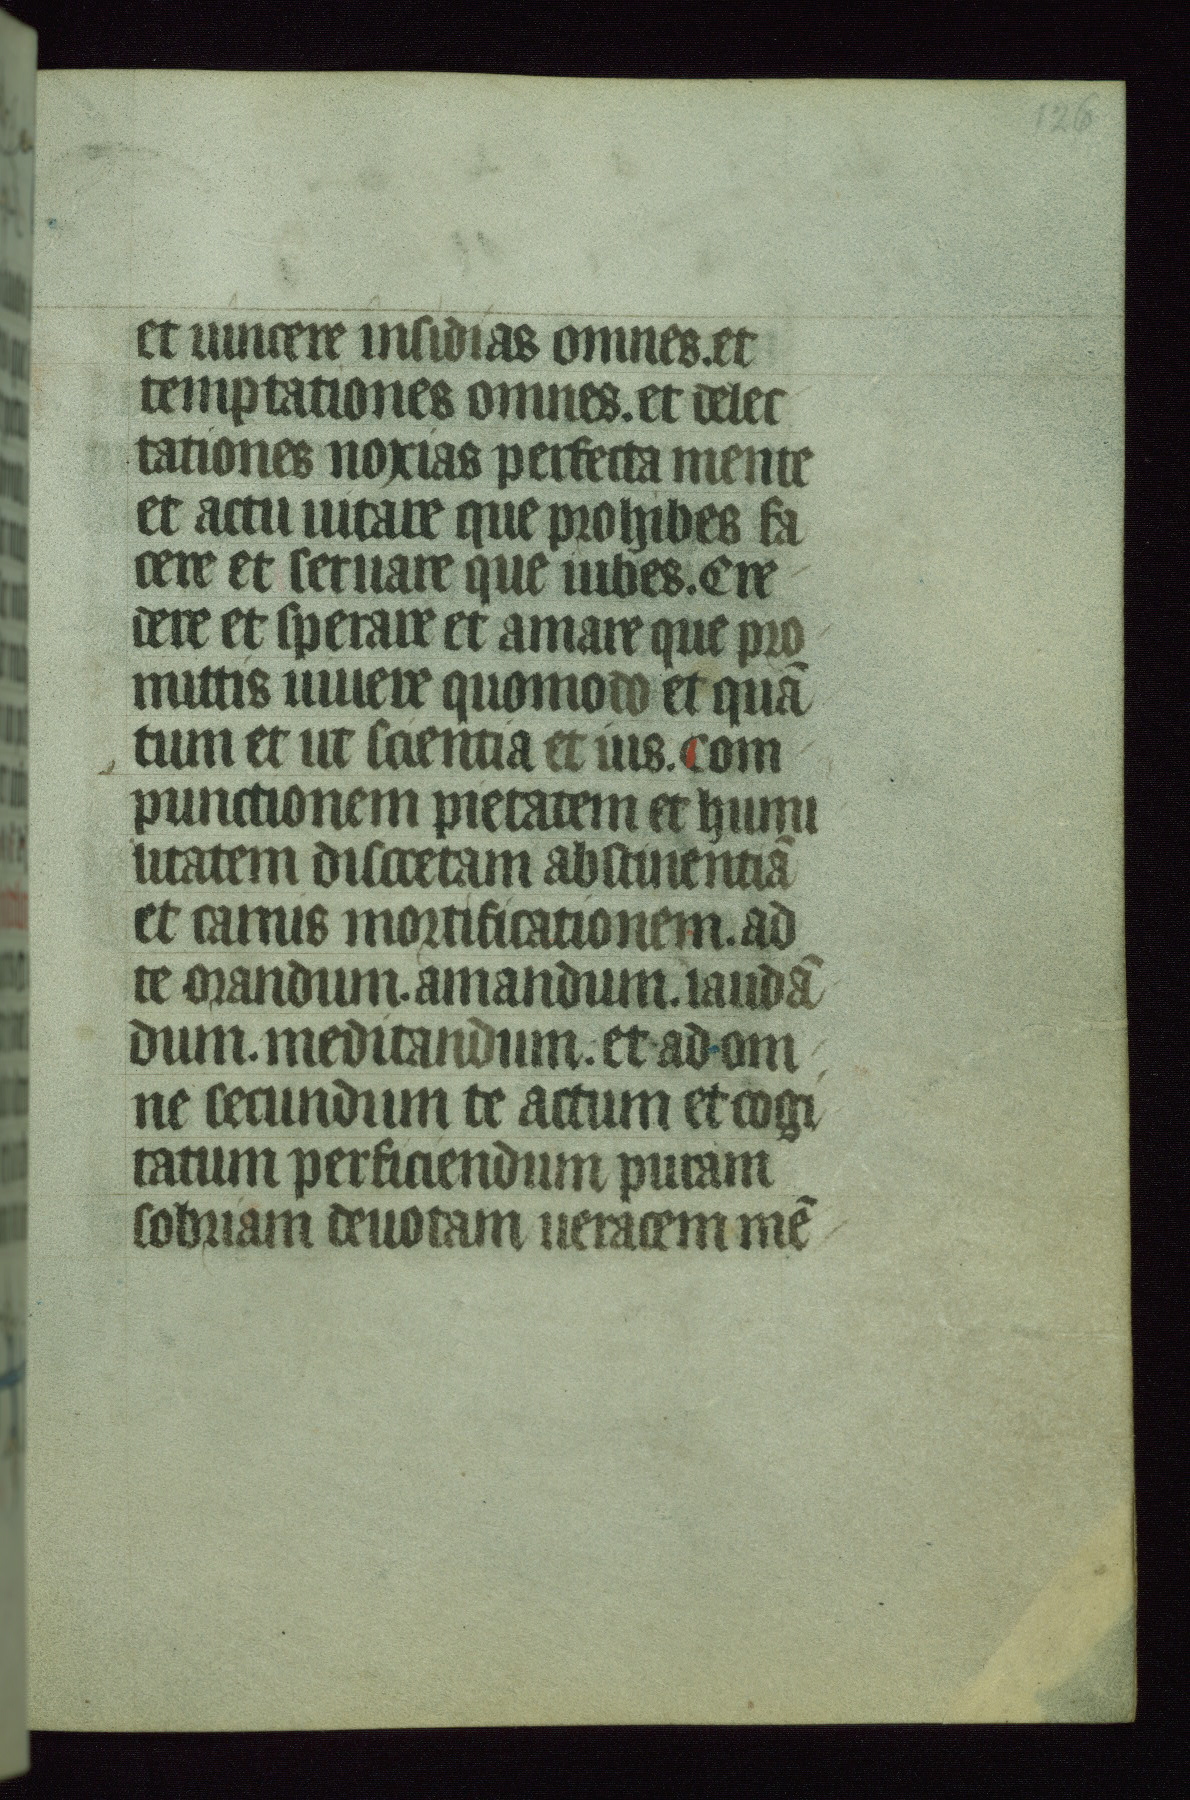 126
et uincere insidias omnes. et
temptationes omnes. et delec
tationes noxias perfecta mente
et actu uitare que prohibes fa
cere et seruare que iubes. Cre
dere et sperare et amare que pro
mittis uiuere quomodo et quā
tum et ut scientia et iiis. Com
punctionem pietatem et humi
litatem discretam abstinentiā
et carnis mortificationem. ad
te orandum. amandum. laudā
dum. meditandum. et ad om
ne secundum te actum et cogi
tatum perficiendum puram
sobriam deuotam ueracem mē